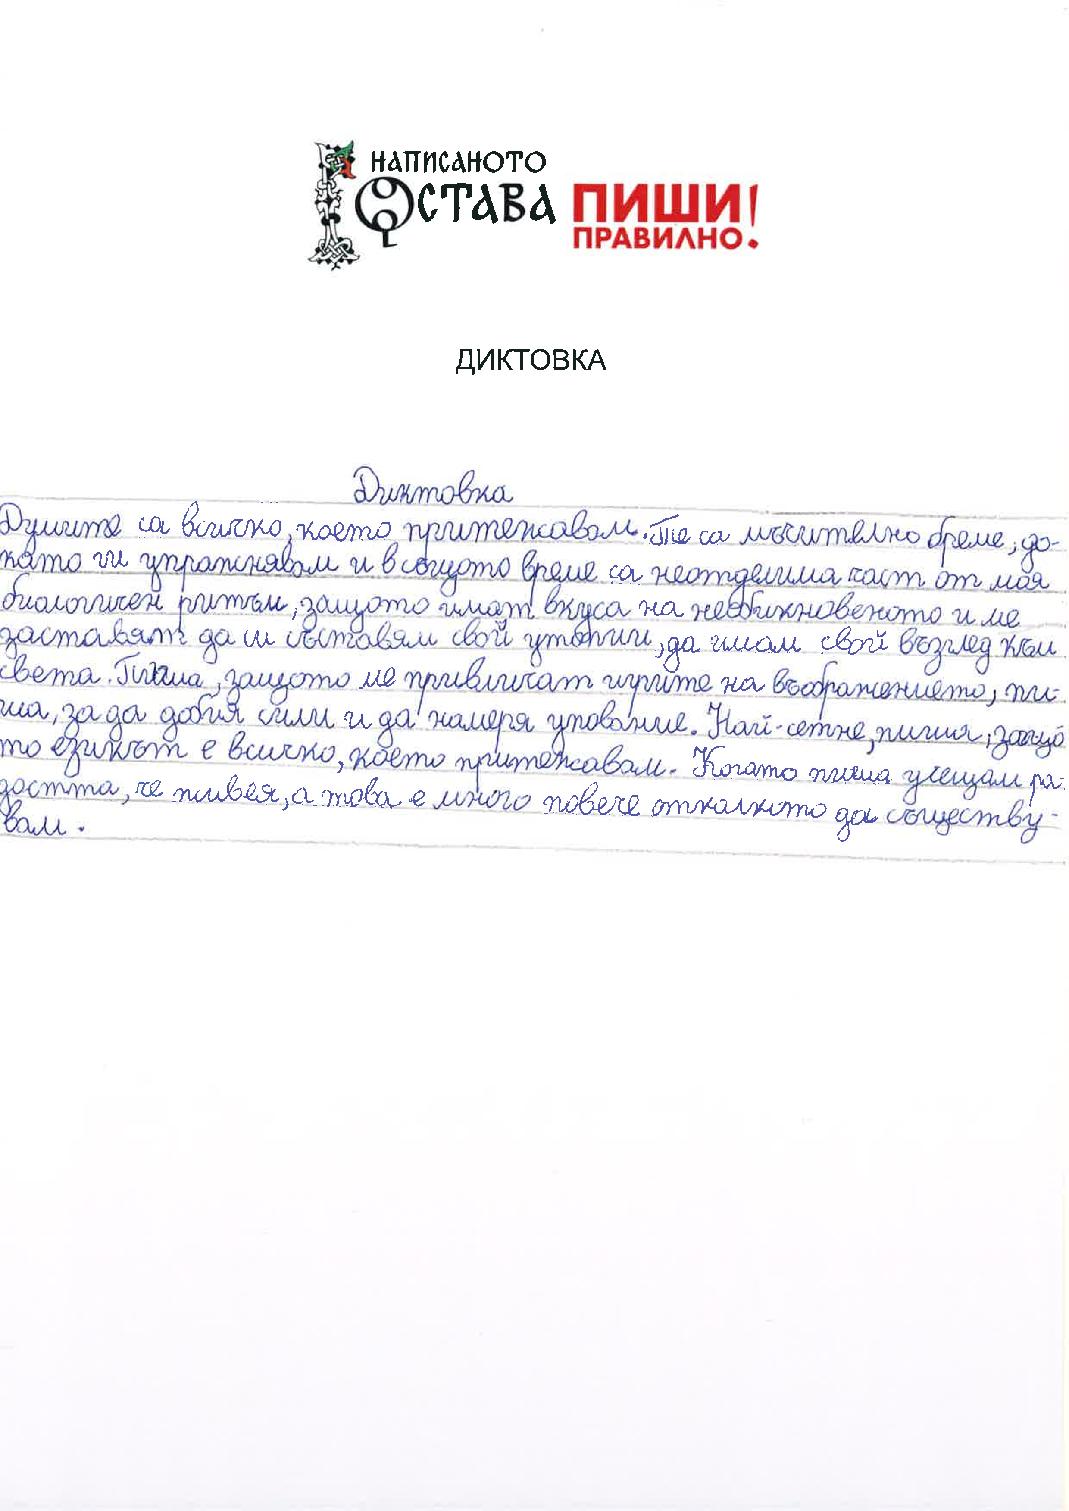 НАПИСАНОТО
ОСТАВА ПИШИ!
ПРАВИЛНО!
ДИКТОВКА
Диктовка
Думите са всичко, което притежавам. Те са мъчително бреме, до-
като ги упражнявам и в същото време са неотделима част от моя
биологичен ритъм, защото имат вкуса на необикновеното и ме
заставят да си съставям свой утопии, да имам свой възглед към
света. Пиша, защото ме привличат игрите на въображението, пи-
ша, за да добия сили и да намеря упование. Най-сетне, пиша, защо
то езикът е всичко, което притежавам. Когато пиша усещам ра-
достта, че живея, а това е много повече отколкото да съществу-
вам.